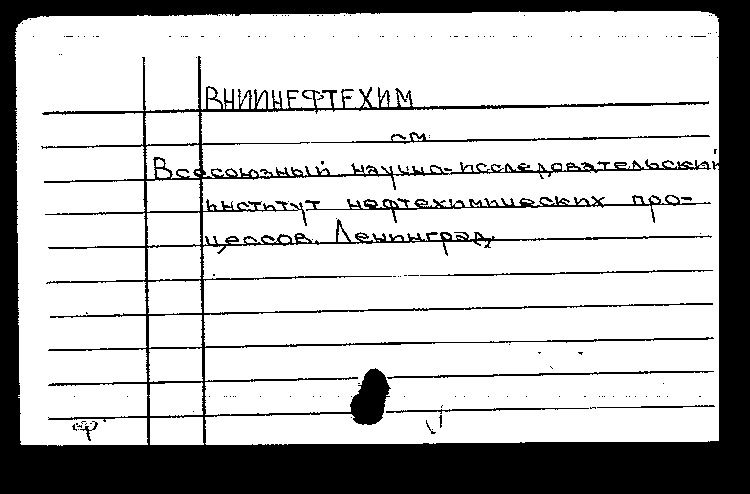 ВНИИНЕФТЕХИМ
см.
Всесоюзный научно-исследовательский
институт нефтехимических про-
цессов. Ленинград.
ф.